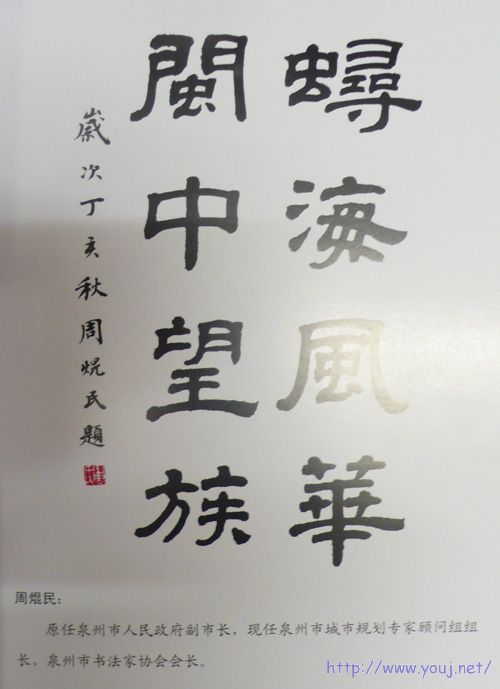 蟳海風華
閩中望族
歲次丁亥秋周焜民題
周焜民：
原任泉州市人民政府副市长，现任泉州市城市规划专家顾问组组
长、泉州市书法家协会会长。
http://www.youj.net/